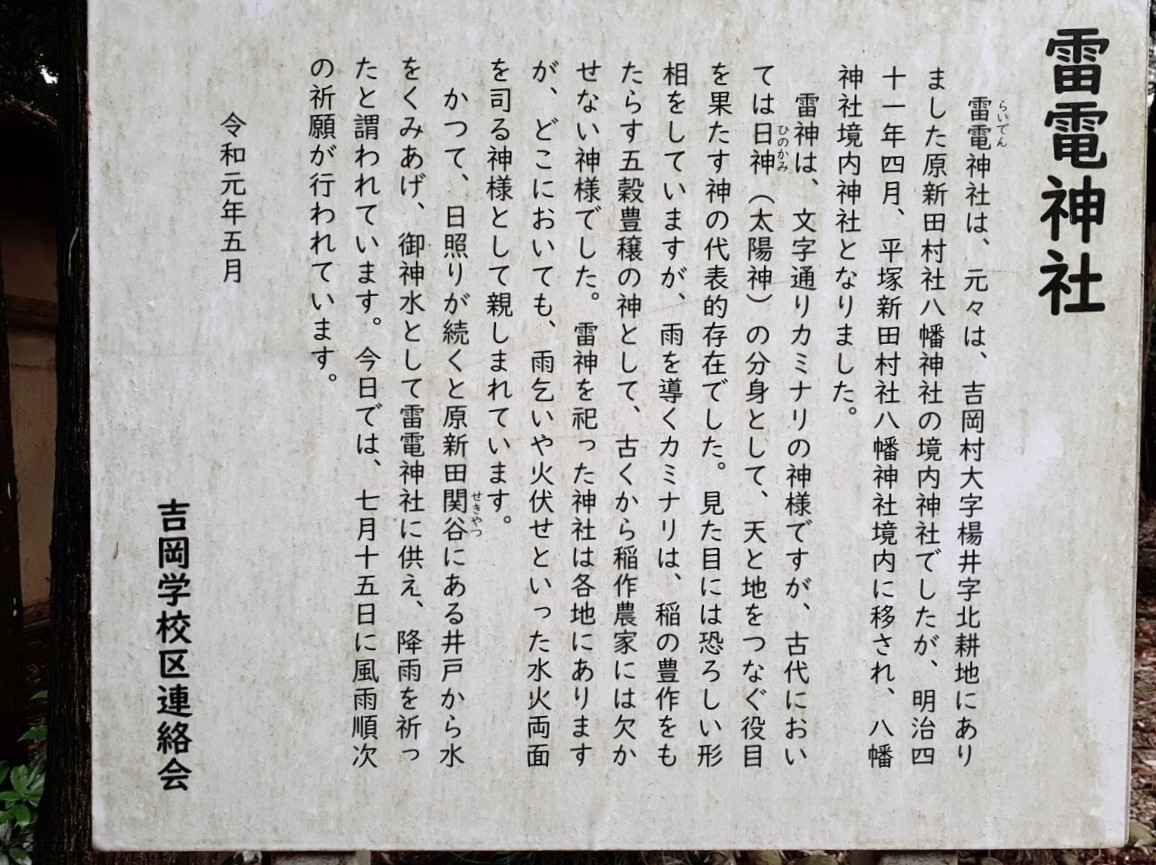 雷電神社
雷電神社は、元々は、吉岡村大字楊井字北耕地にあり
らいでん
ました原新田村社八幡神社の境内神社でしたが、明治四
十一年四月、平塚新田村社八幡神社境内に移され、八幡
神社境内神社となりました。
雷神は、文字通りカミナリの神様ですが、古代におい
ては日神（太陽神）の分身として、天と地をつなぐ役目
ひのかみ
を果たす神の代表的存在でした。見た目には恐ろしい形
相をしていますが、雨を導くカミナリは、稲の豊作をも
たらす五穀豊穣の神として、古くから稲作農家には欠か
せない神様でした。雷神を祀った神社は各地にあります
が、どこにおいても、雨乞いや火伏せといった水火両面
を司る神様として親しまれています。
かつて、日照りが続くと原新田関谷にある井戸から水
せきやつ
をくみあげ、御神水として雷電神社に供え、降雨を祈っ
たと謂われています。今日では、七月十五日に風雨順次
の祈願が行われています。
令和元年五月
吉岡学校区連絡会